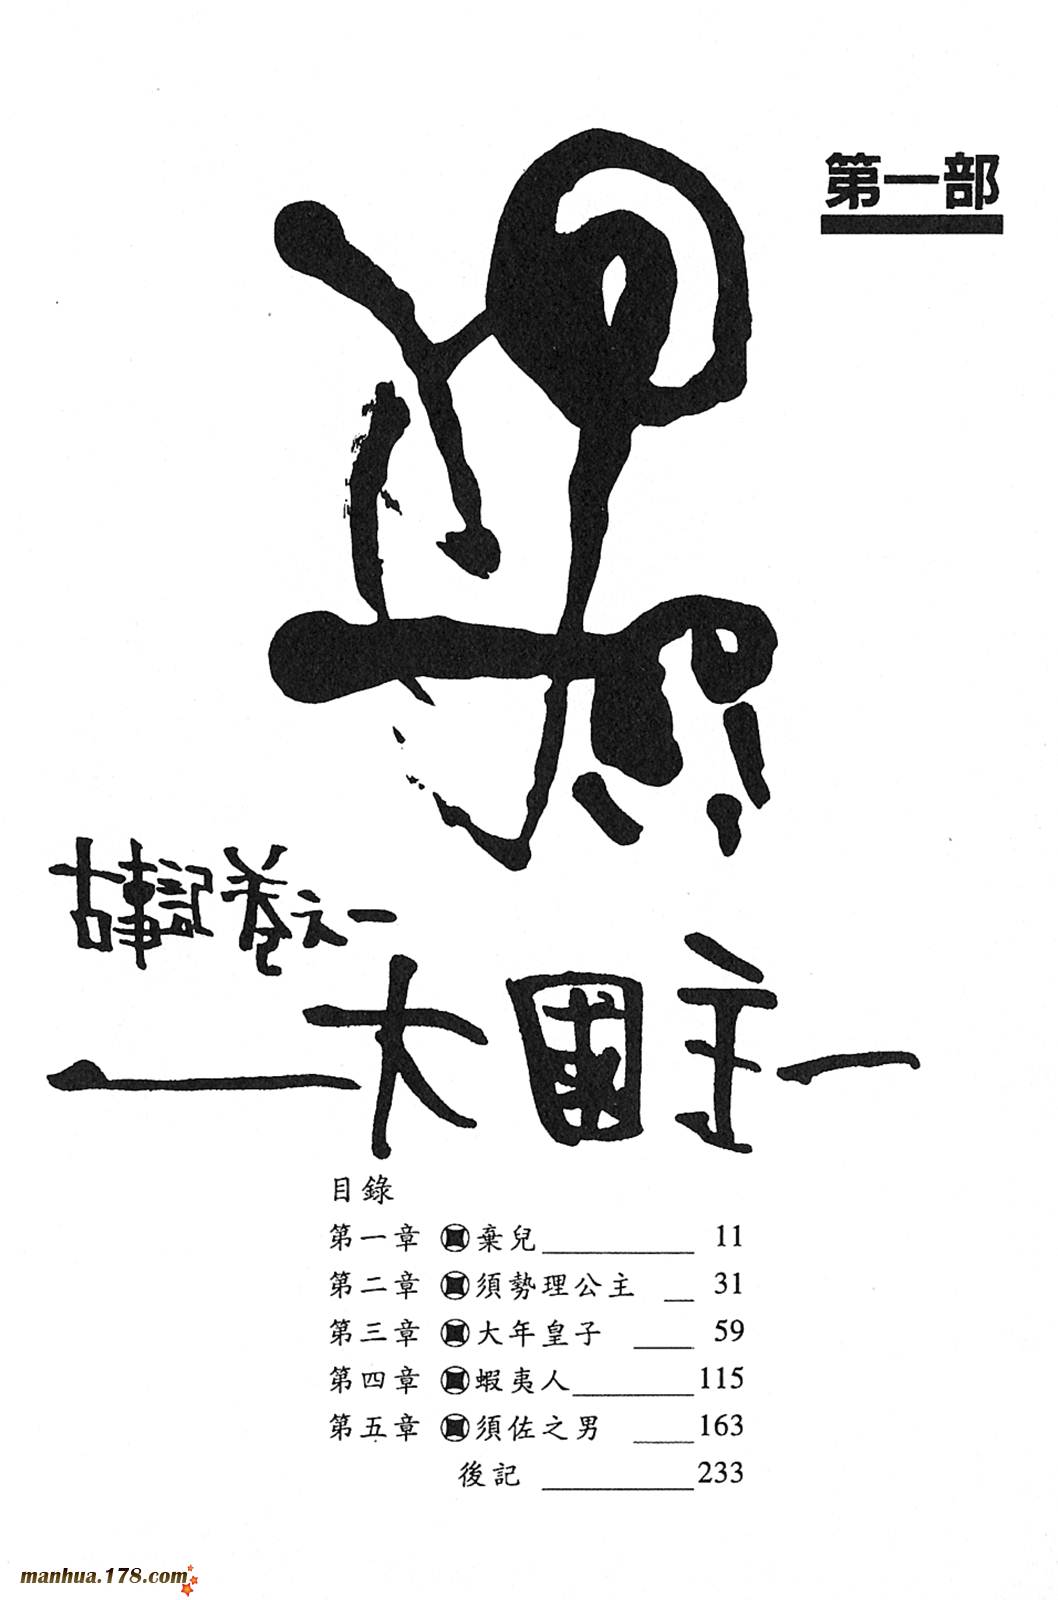 第一部
古事記卷之一
大國主
目錄
第一章 棄兒 11
第二章 須勢理公主 31
第三章 大年皇子 59
第四章 蝦夷人 115
第五章 須佐之男 163
後記 233
manhua.178.com